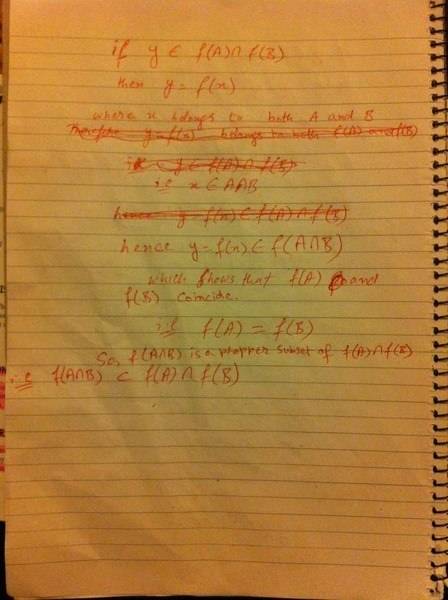 if y ∈ f(A)∩f(B)
then y = f(x)
where x belongs to both A and B
Therefore y=f(x) belongs to both f(A) and f(B)
ie y ∈ f(A)∩f(B)
ie x ∈ A∩B
hence y=f(x) ∈ f(A)∩f(B)
hence y=f(x) ∈ f(A∩B)
which shows that f(A) and
f(B) Coincide.
ie f(A) = f(B)
So, f(A∩B) is a propper subset of f(A)∩f(B)
ie f(A∩B) ⊂ f(A)∩f(B)